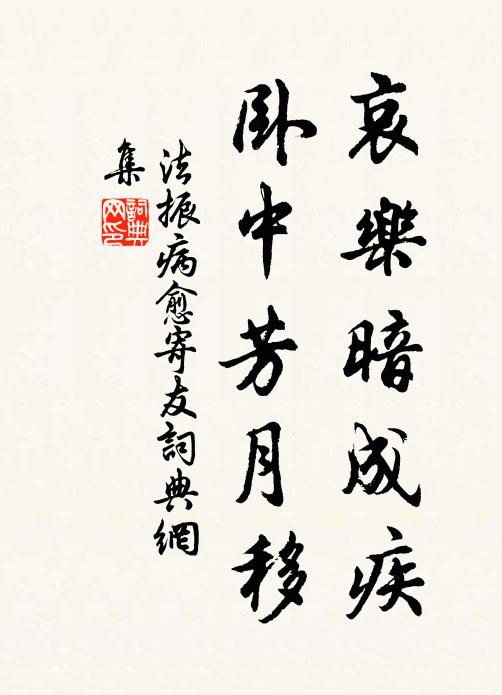 哀樂暗成疾
卧中芳月移
法振病愈寄友詞典網
集
詞典
网印